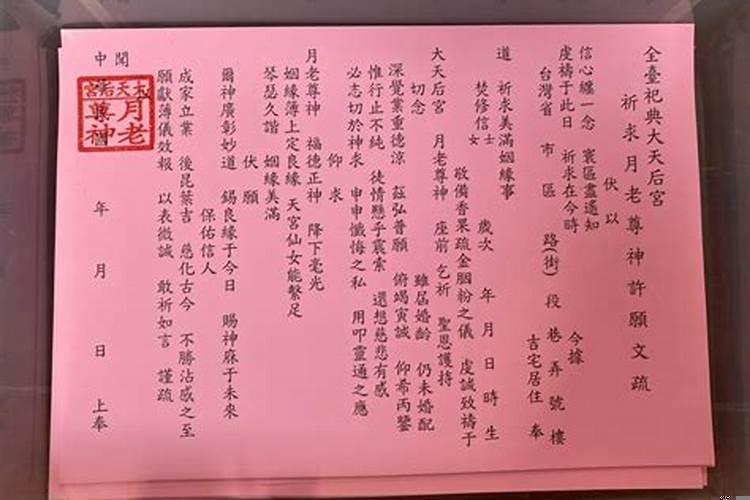 全臺祀典大天后宮
祈求月老尊神許願文疏
伏以
信心纔一念 寰區盡遙知
虔禱于此日 祈求在今時
今據
台灣省 市 區 路(街) 段 巷 弄 號 樓
吉宅居住 奉
道 祈求美滿姻緣事
焚修信士女 歲次 年 月 日 時 生
敬備香果疏金胭粉之儀 虔誠致禱于
大天后宮 月老尊神 座前 乞祈 聖恩護持
切念 雖屆婚齡 仍未婚配
深覺業重德涼 茲弘普願 俯竭寅誠 仰希丙鑒
惟行止不純 徒情懸乎震索 還想慈悲有感
必志切於神求 申申懺悔之私 用叩靈通之應
仰求
月老尊神 福德正神 降下毫光
姻緣簿上定良緣 天宮仙女能繫足
琴瑟久諧 姻緣美滿
伏願
爾神廣彰妙道 錫良緣于今日 賜神庥于未來
保佑信人
成家立業 後昆葉吉 慈化古今 不勝沾感之至
願獻薄儀效報 以表微誠 敢祈如言 謹疏
中聞
大天后宮
月老尊神
年 月 日 上奉